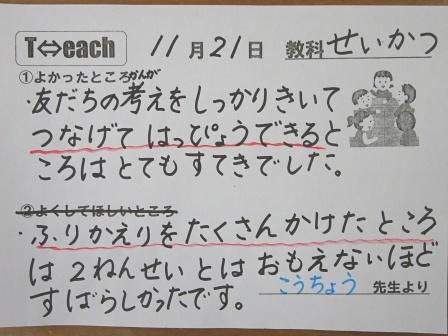 T⇔each 11月21日 教科 せいかつ
①よかったところ
・友だちの考えをしっかりきいて
かんが
つなげて はっぴょうできると
ころは とても すてきでした。
②よくしてほしいところ
・ふりかえりを たくさん かけた ところ
は 2ねんせい とは おもえない ほど
すばらしかったです。 こうちょう 先生より